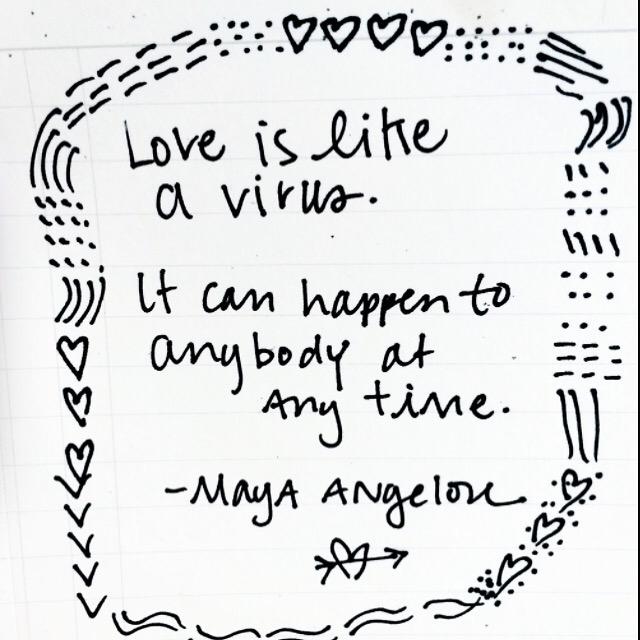 Love is like
a virus.
It can happen to
anybody at
any time.
-Maya Angelou